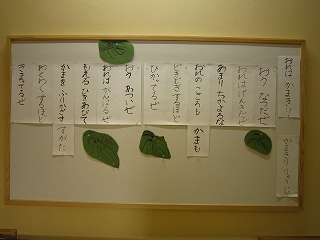 おれは かまきり かまきり りゅうじ
おう なつだぜ
おれは げんきだぜ
あまり ちかよるな
おれの こころも かまも
どきどきするほど
ひかってるぜ
おう あついぜ
おれは がんばるぜ
もえる ひをあびて
かまを ふりかざす すがた
わくわくするほど
きまってるぜ